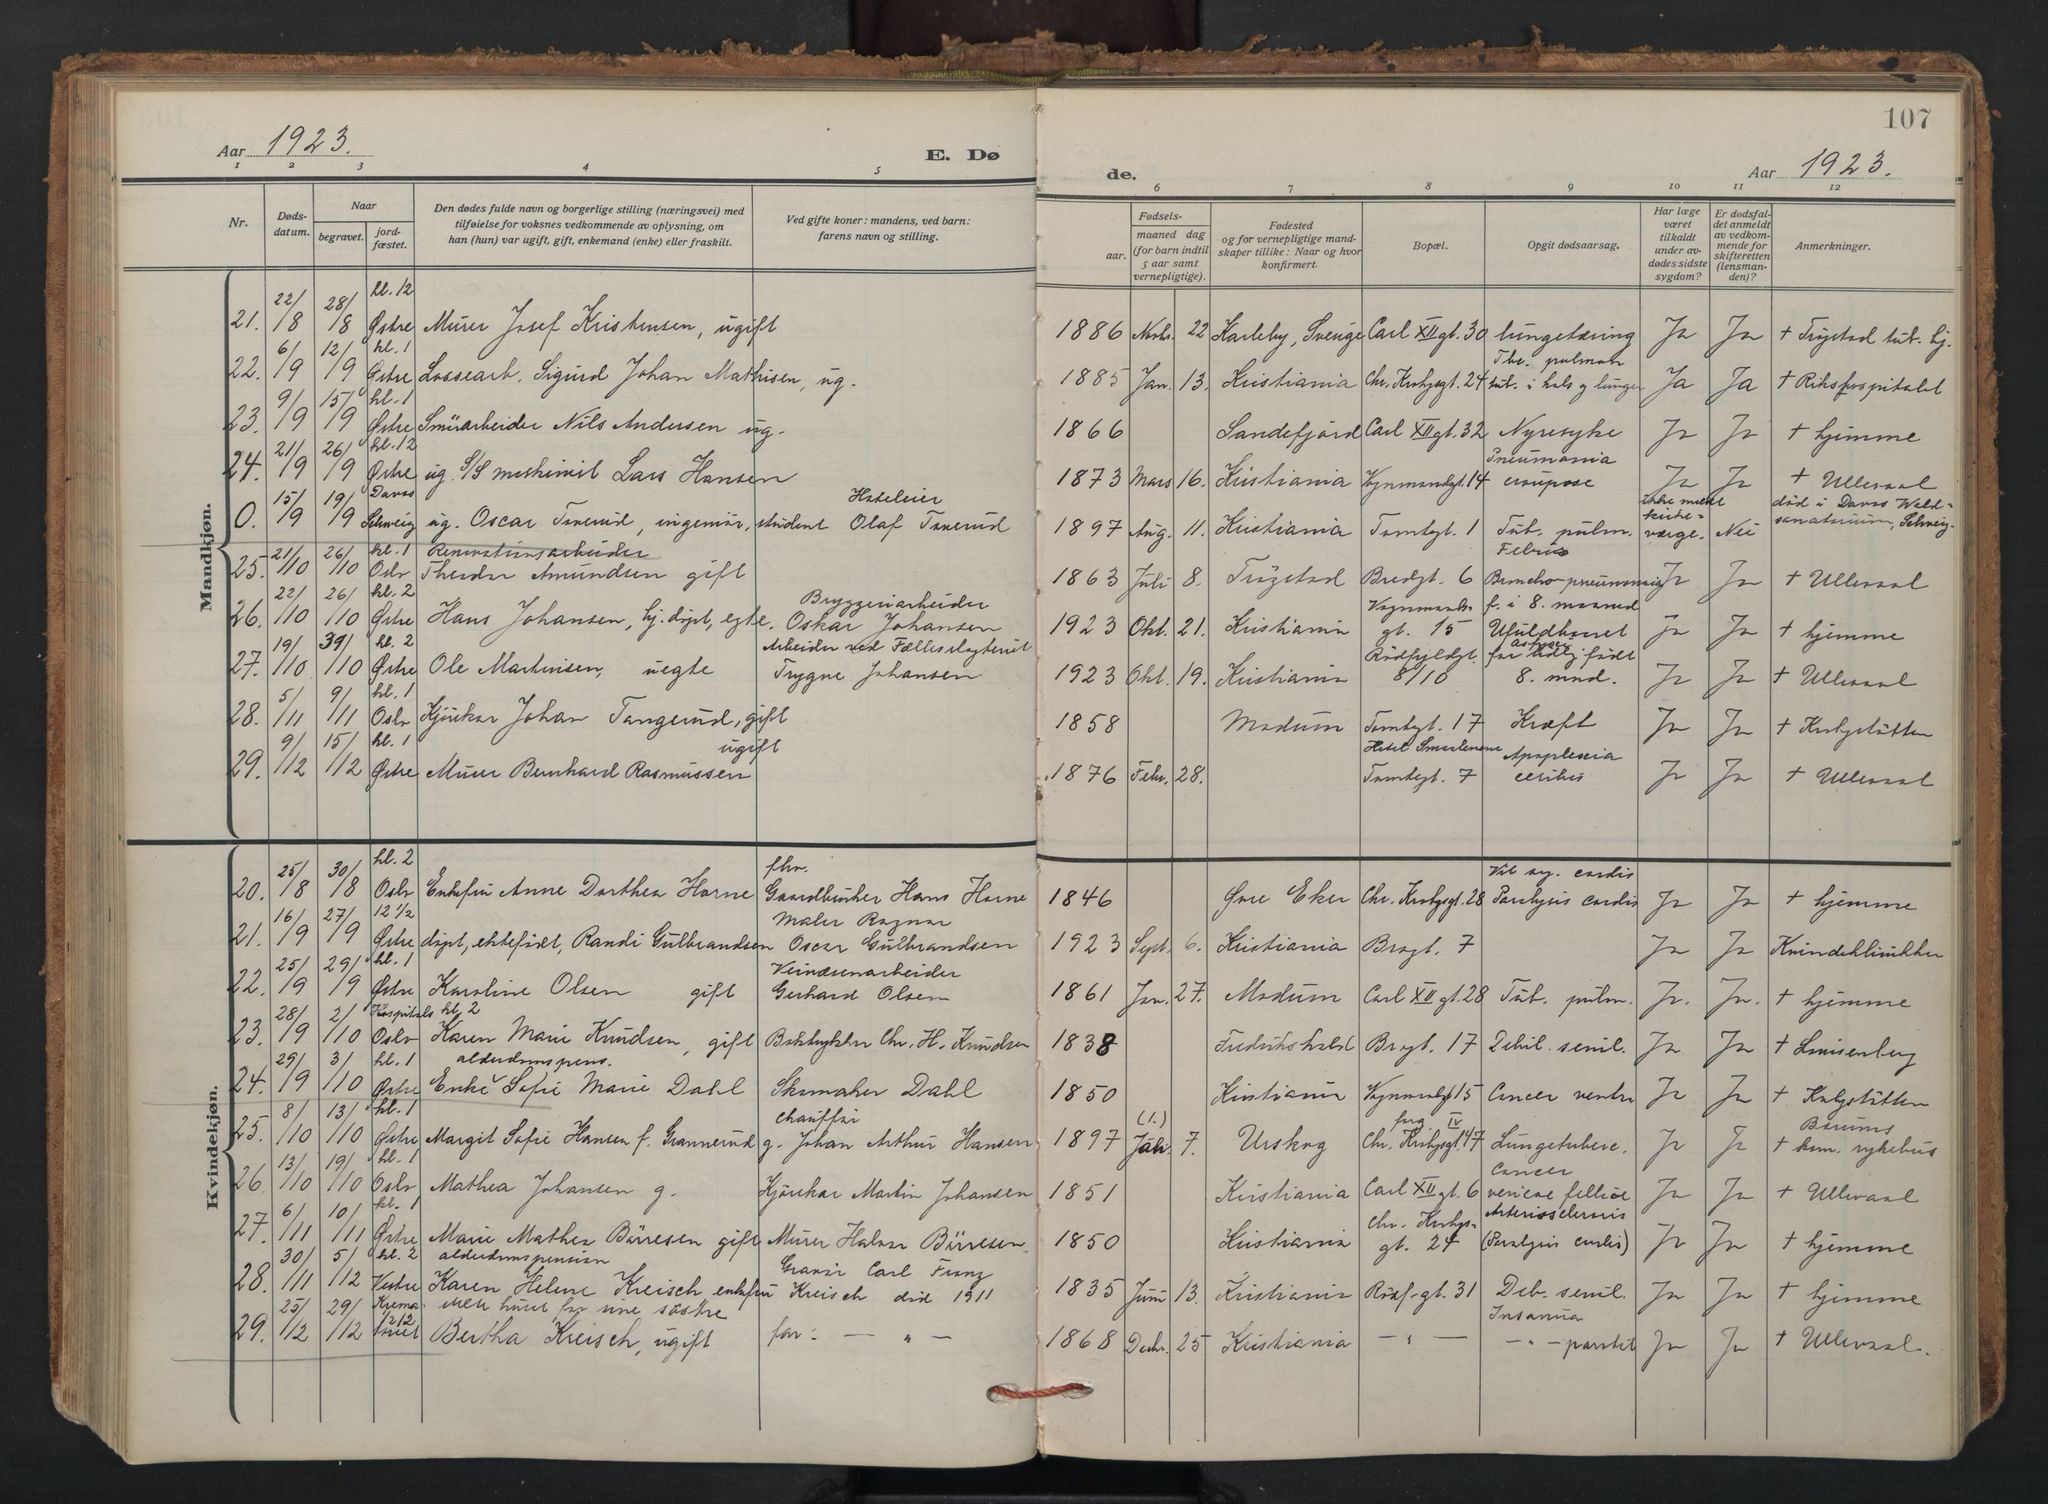 107
Aar 1923.
E. Dø
de.
Aar 1923.
1 2 3 4 5 6 7 8 9 10 11 12
Nr.
Døds-
datum.
Naar
begravet.
jord-
fæstet.
Den dødes fulde navn og borgerlige stilling (næringsvei) med
tilføielse for voksnes vedkommende av oplysning, om
han (hun) var ugift, gift, enkemand (enke) eller fraskilt.
Ved gifte koner: mandens, ved barn:
farens navn og stilling.
Fødsels-
aar.
maaned dag
(for barn indtil
5 aar samt
vernepligtige).
Fødested
og for vernepligtige mand-
skaper tillike: Naar og hvor
konfirmert.
Bopæl.
Opgit dødsaarsag.
Har læge
været
tilkaldt
under av-
dødes sidste
sygdom?
Er dødsfal-
det anmeldt
av vedkom-
mende for
skifteretten
(lensman-
den)?
Anmerkninger.
Mandkjøn.
21. 22/8 28/8 kl. 12 Østre Murer Josef Kristensen, ugift 1886 Novbr. 22 Karleby, Sverige Carl XII gt. 30 lungetæring Ja Ja + Trøgstad tub. hj.
22. 6/9 12/9 kl. 1 Østre Lossearb. Sigurd Johan Mathisen, ug. 1885 Jan. 13. Kristiania Chr. Krohgsgt. 24 Tbc. pulmon tub. i hals og lunger Ja Ja + Rikshospitalet
23. 9/9 15/9 kl. 1 Østre Smörarbeider Nils Andersen ug. 1866 Sandefjord Carl XII gt. 32 Nyresyke Ja Ja + hjemme
24. 21/9 26/9 kl. 12 Østre ug. Lars Hansen 1873 Mars 16. Kristiania Vognmandsgt. 14 Pneumonia croupose Ja Ja + Ullevaal
0. 15/9 19/9 Davos Schweiz ug. Oscar Tanerud, ingeniør, student Hoteleier Olaf Tanerud 1897 Aug. 11. Kristiania Tomtegt. 1 Tub. pulm. ikke meldt kirke-værge. Nei død i Davos Wald-sanatorium, Schweiz.
25. 21/10 26/10 kl. 1 Oslo Renovationsarbeider Theodor Amundsen gift 1863 Juli 8. Trøgstad Bredgt. 6 Febris Broncho-pneumonia Ja Ja + Ullevaal
26. 22/10 26/10 kl. 2 Østre Hans Johansen, hj. døpt, egte. Bryggeriarbeider Oskar Johansen 1923 Okt. 21. Kristiania Vognmands-gt. 15 f. i 8. maaned Ufuldbaaret Ja Ja + hjemme
27. 19/10 /10 kl. 2 Østre Ole Martinsen, uegte Arbeider ved Fællesslagteriet Trygve Johansen 1923 Okt. 19. Kristiania Rödfyldgt. 8/10 for tidlig født 8. mnd. Ja Ja + Ullevaal
28. 5/11 9/11 kl. 1 Oslo Kjørekar Johan Tangerud, gift 1858 Modum Tomtegt. 17 Kræft Ja Ja + Krohgstøtten
29. 9/12 15/12 kl. 1 Østre Murer Bernhard Rasmussen ugift 1876 Febr. 28. Hotel Tomtegt. 7 Apoplexia cerebri Ja Ja + Ullevaal
Kvindekjøn.
20. 25/8 30/8 kl. 2 Oslo Enkefru Anne Dorthea Horne fhv. Gaardbruker Hans Horne 1846 Øvre Eker Chr. Krohgsgt. 28 Vit. org. cordis Paralysis cordis Ja Ja + hjemme
21. 16/9 27/9 12 1/2 Østre døpt, ektefødt, Randi Gulbrandsen Maler Ragnar Oscar Gulbrandsen 1923 Sept. 6. Kristiania Brogt. 7 Ja Ja Kvindeklinikken
22. 25/9 29/9 kl. 1 Østre Karoline Olsen gift Veivæsenarbeider Gerhard Olsen 1861 Jan. 27. Modum Carl XII gt. 28 Tub. pulm. Ja. Ja. + hjemme
23. 28/9 2/10 Hospitals kl. 2 Oslo Karen Marie Knudsen, gift Chr. H. Knudsen 1838 Fredrikshald Brogt. 17 Debil. senil. Ja Ja + Louisenberg
24. 29/9 3/10 kl. 1 Østre alderdomspens. Enke Sofie Marie Dahl Skomaker Dahl 1850 Kristiania Vognmandsgt 15 Cancer ventr. Ja Ja + Krohgstøtten
25. 8/10 13/10 kl. 1 Østre Margit Sofie Hansen f. Grannerud g. chauffør Johan Arthur Hansen 1897 (1.) Jan. 7. Urskog Chr. Krohgsgt. 47 IV Lungetuberc. Ja Ja + Bærums kom. sykehus
26. 13/10 19/10 kl. 1 Oslo Mathea Johansen g. Kjørekar Martin Johansen 1851 Kristiania Carl XII gt. 6 Cancer vesicae felleae Ja Ja + Ullevaal
27. 6/11 10/11 kl. 1 Østre Marie Mathea Børresen gift Murer Halvor Børresen 1850 Kristiania Chr. Krohgs-gt. 24 Arteriosclerosis (Paralysis cordis) Ja Ja + hjemme
28. 30/11 5/12 kl. 2 Vestre alderdomspension Karen Helene Kreisch enkefru Gravør Carl Franz Kreisch død 1911 1835 Juni 13. Kristiania Rödf.gt. 31 Deb. senil. Ja Ja + hjemme
29. 25/12 29/12 Krema-toriet Bertha Kreisch, ugift far: — „ — 1868 Decbr. 25 Kristiania — „ — Insania — „ — Ja Ja + Ullevaal.